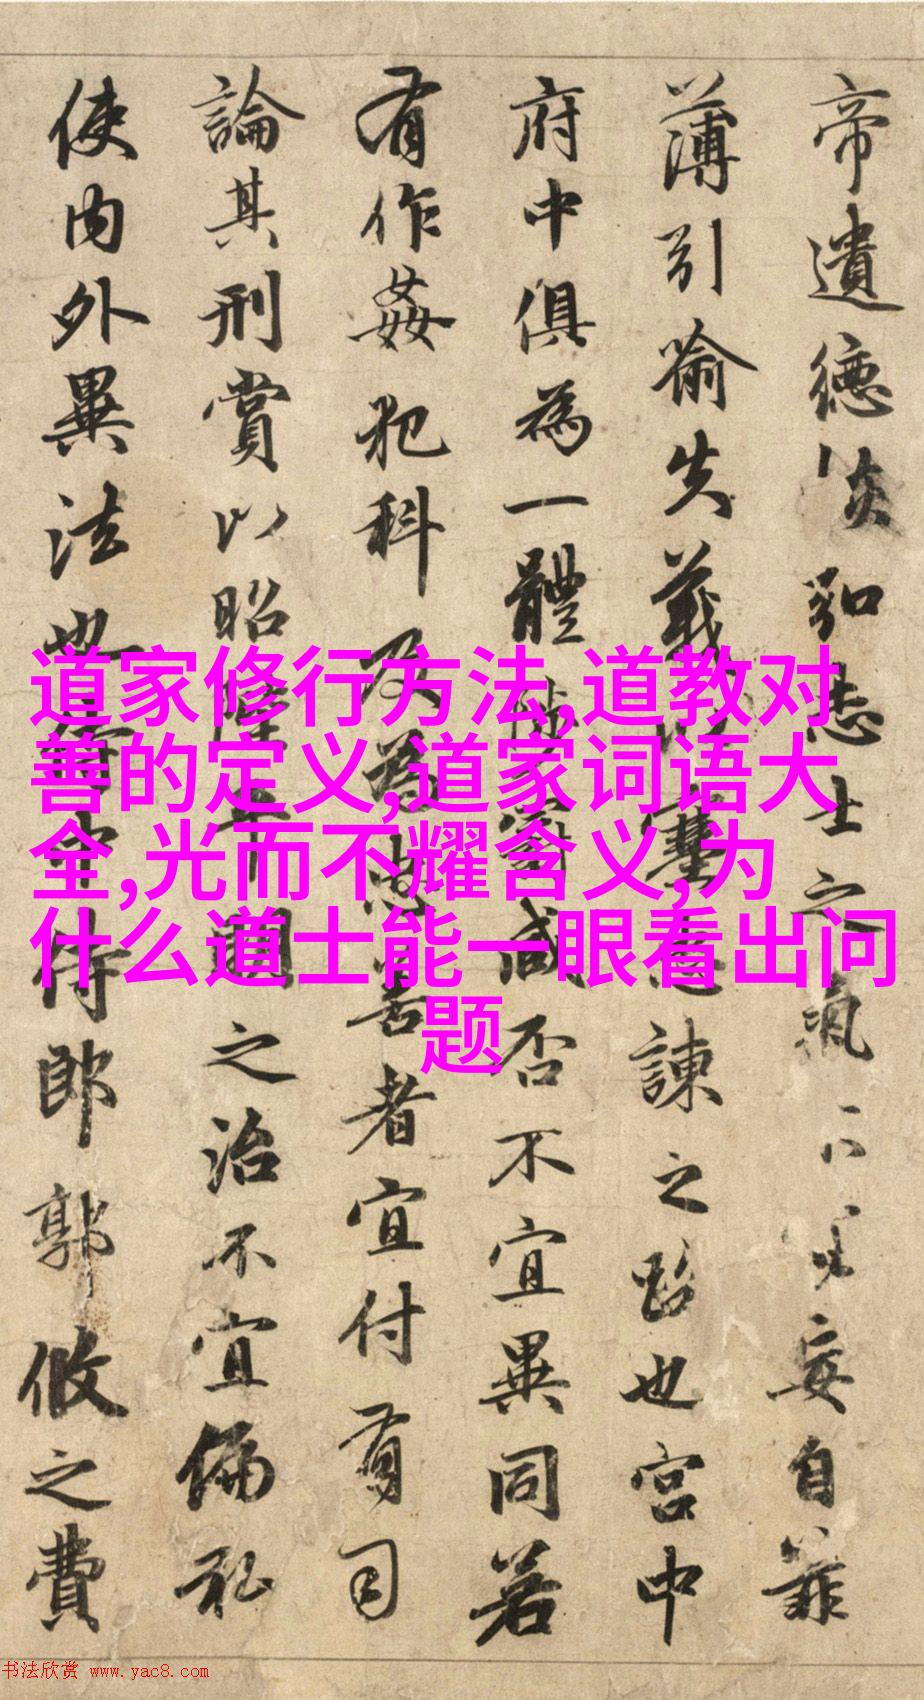 帝遺德恢弘志士之氣不宜妄自菲
薄引喻失義以塞忠諫之路也宮中
府中俱為一體陟罰臧否不宜異同若
有作姦犯科及為忠善者宜付有司
論其刑賞以昭陛平明之治不宜偏私
使內外異法也侍中侍郎郭攸之費
道家修行方法,道教对
善的定义,道家词语大
全,光而不耀含义,为
什么道士能一眼看出问
题
书法欣赏 www.yac8.com